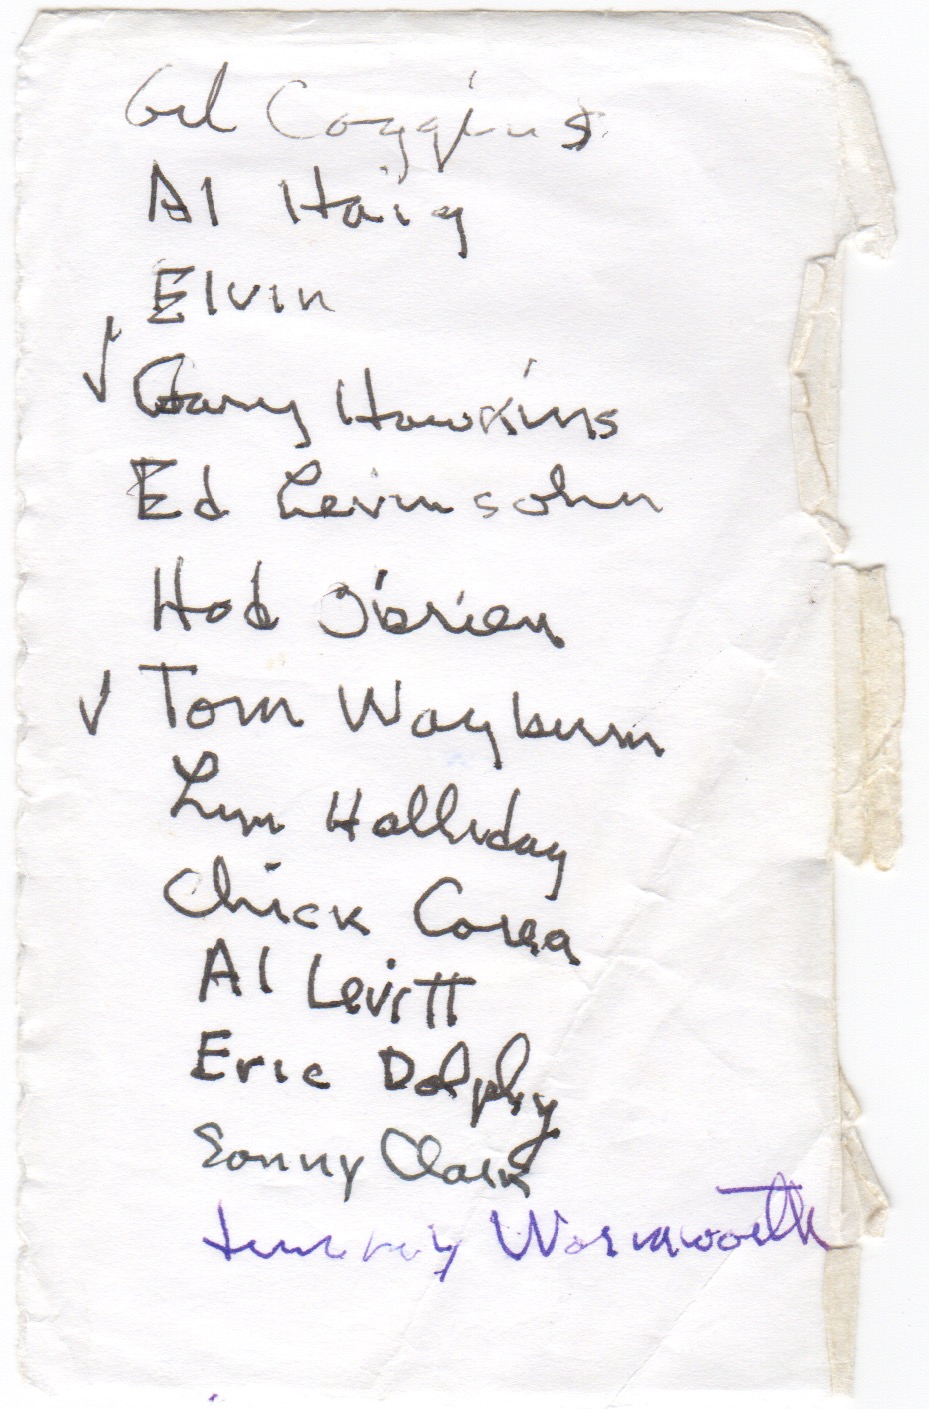 Gil Coggins
Al Haig
Elvin
✓ Gary Hawkins
Ed Levinsohn
Hod O'Brien
✓ Tom Wayburn
Lynn Halliday
Chick Corea
Al Levitt
Eric Dolphy
Sonny Clark
Wormworth